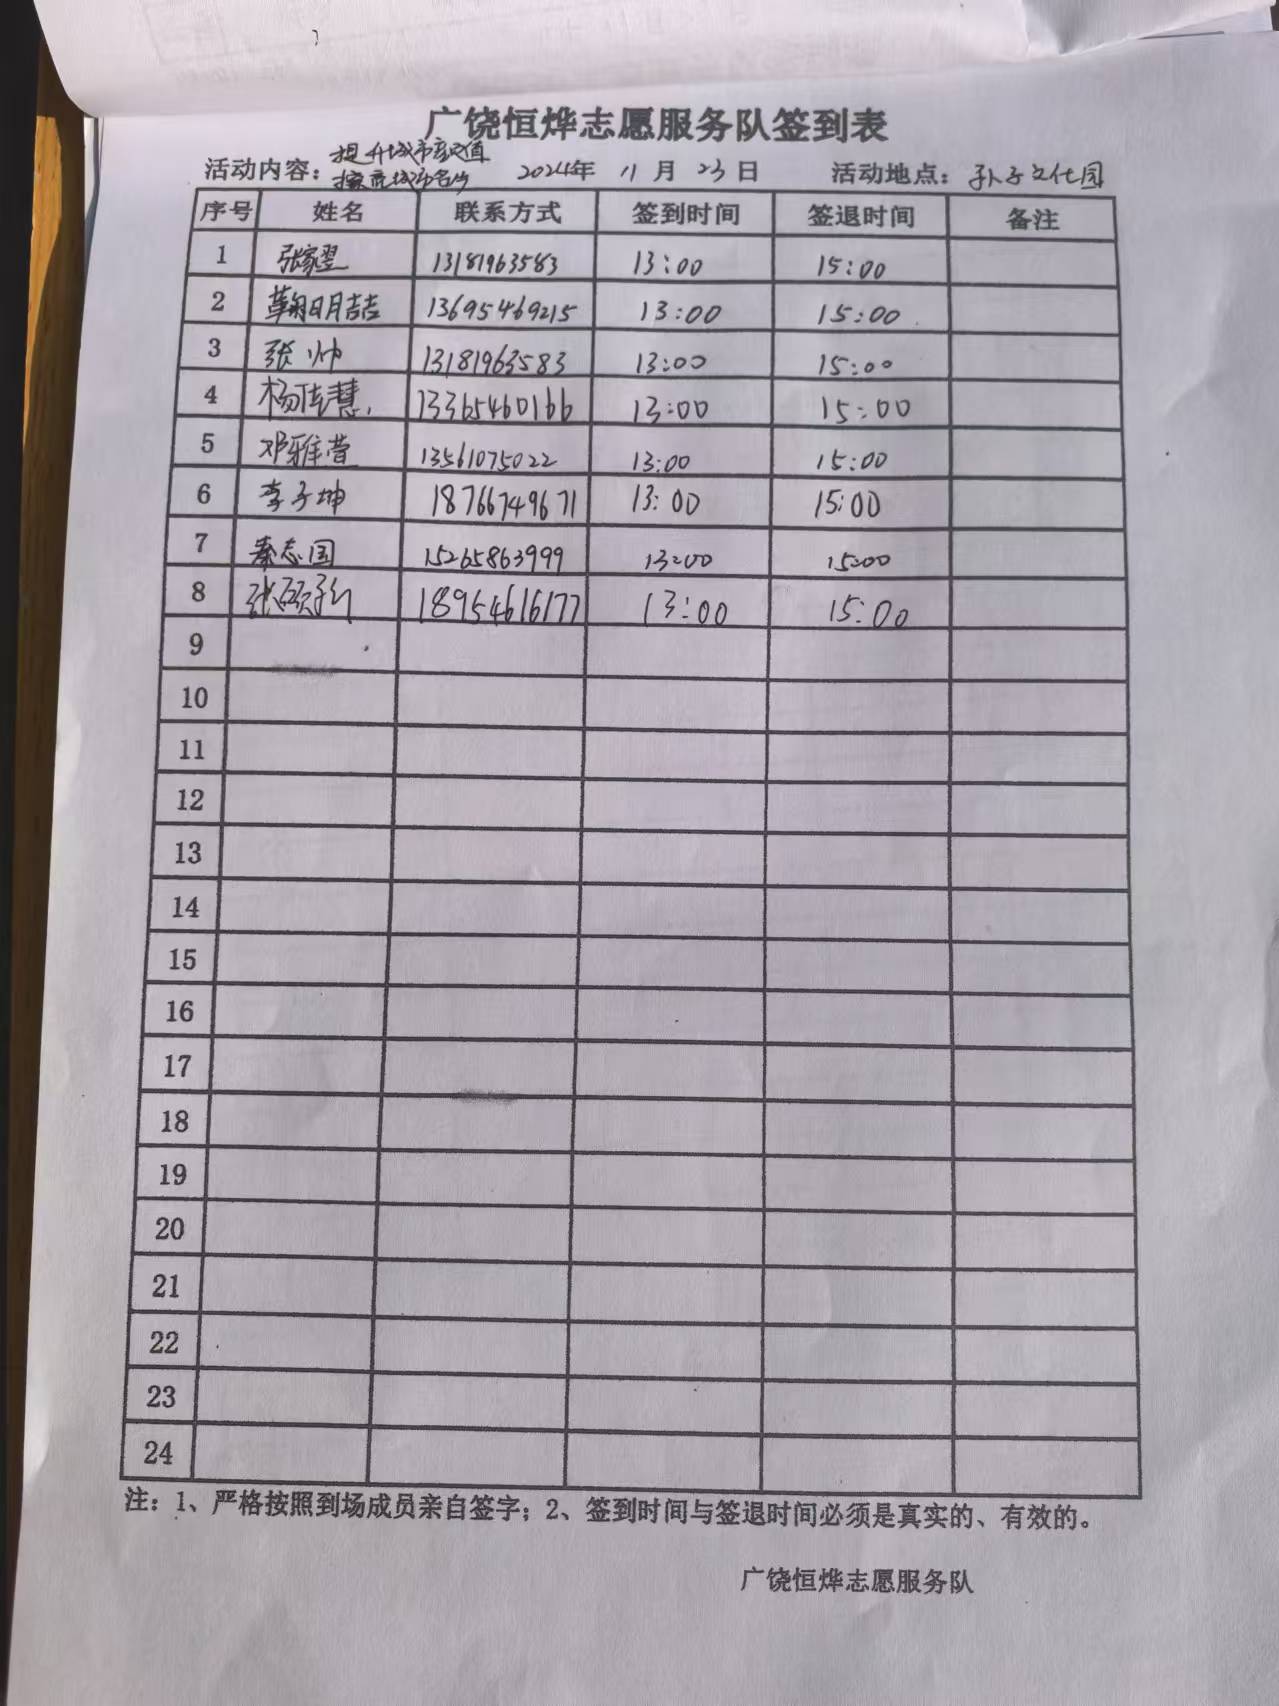 广饶恒烨志愿服务队签到表
活动内容：提升城市颜值 擦亮城市名片 2024年 11月 23日 活动地点：孙子文化园
序号 姓名 联系方式 签到时间 签退时间 备注
1 张家翌 13181963583 13:00 15:00
2 鞠明喆 13695469215 13:00 15:00
3 张帅 13181963583 13:00 15:00
4 杨佳慧 13365460166 13:00 15:00
5 邓雅萱 13561075022 13:00 15:00
6 李子坤 18766749671 13:00 15:00
7 秦志国 15265863999 13:00 15:00
8 张硕 18954616177 13:00 15:00
9
10
11
12
13
14
15
16
17
18
19
20
21
22
23
24
注：1、严格按照到场成员亲自签字；2、签到时间与签退时间必须是真实的、有效的。
广饶恒烨志愿服务队